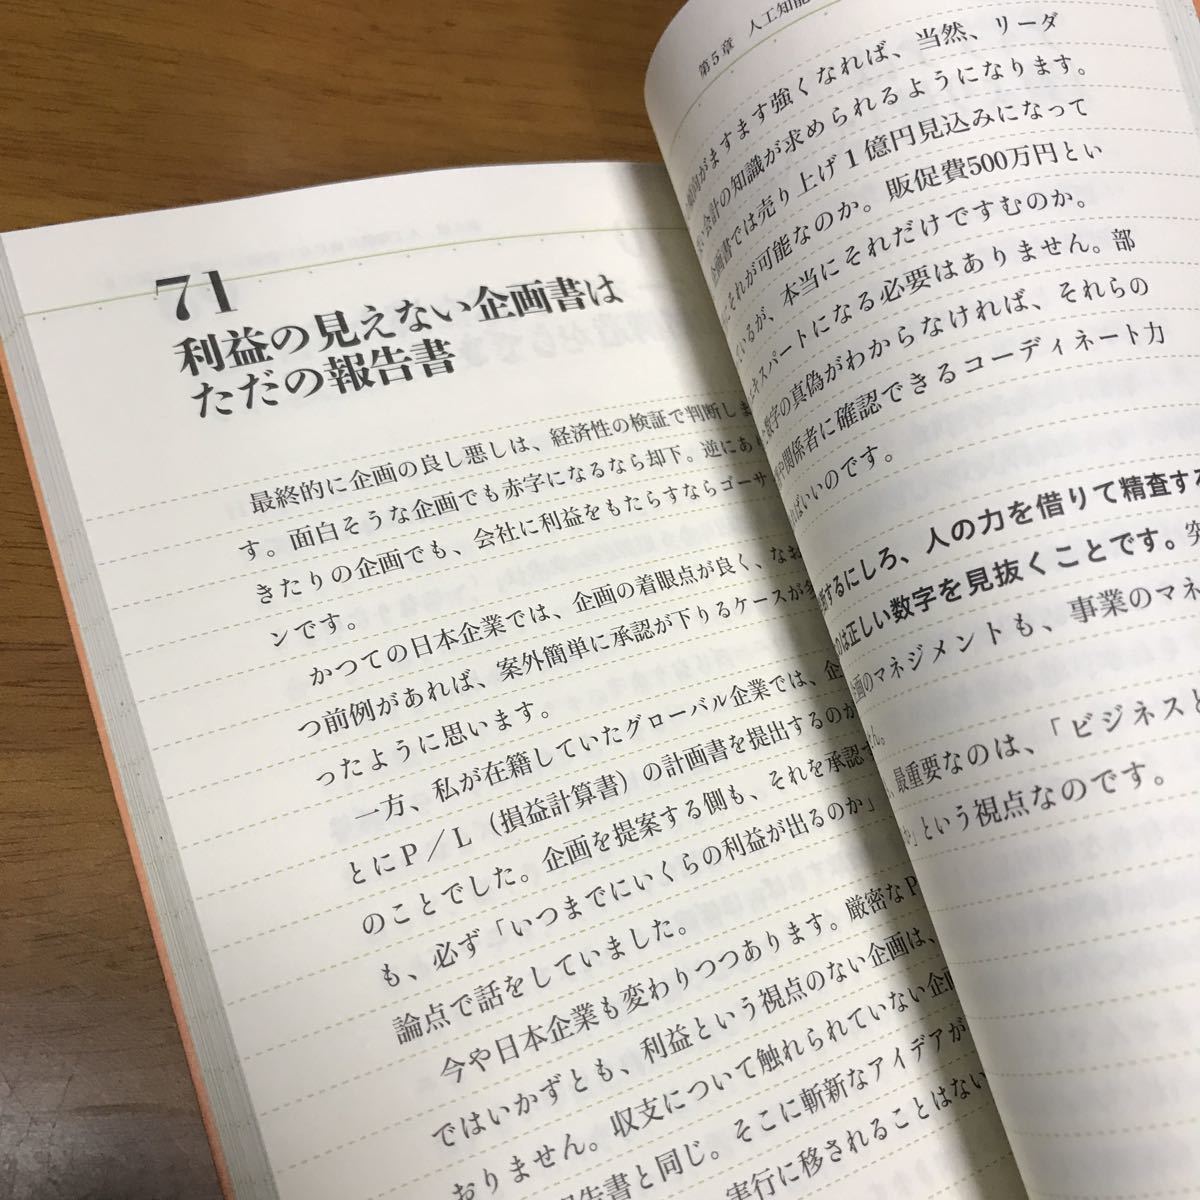 71
利益の見えない企画書は
ただの報告書
最終的に企画の良し悪しは、経済性の検証で判断しま
す。面白そうな企画でも赤字になるなら却下。逆にあり
きたりの企画でも、会社に利益をもたらすならゴーサ
ンです。
かつての日本企業では、企画の着眼点が良く、なお
つ前例があれば、案外簡単に承認が下りるケースが多
ったように思います。
一方、私が在籍していたグローバル企業では、企
とにP／L（損益計算書）の計画書を提出するのが
のことでした。企画を提案する側も、それを承認す
も、必ず「いつまでにいくらの利益が出るのか」
論点で話をしていました。
今や日本企業も変わりつつあります。厳密なP
ではいかずとも、利益という視点のない企画は、
おりません。収支について触れられていない企画
報告書と同じ。そこに斬新なアイデアが
実行に移されることはない
第5章 人工知能
がますます強くなれば、当然、リーダ
会計の知識が求められるようになります。
企画書では売り上げ1億円見込みになって
それが可能なのか。販促費500万円とい
ているが、本当にそれだけですむのか。
エキスパートになる必要はありません。部
数字の真偽がわからなければ、それらの
や関係者に確認できるコーディネート力
ばいいのです。
するにしろ、人の力を借りて精査する
のは正しい数字を見抜くことです。突
企画のマネジメントも、事業のマネ
せん。
最重要なのは、「ビジネスと
」という視点なのです。